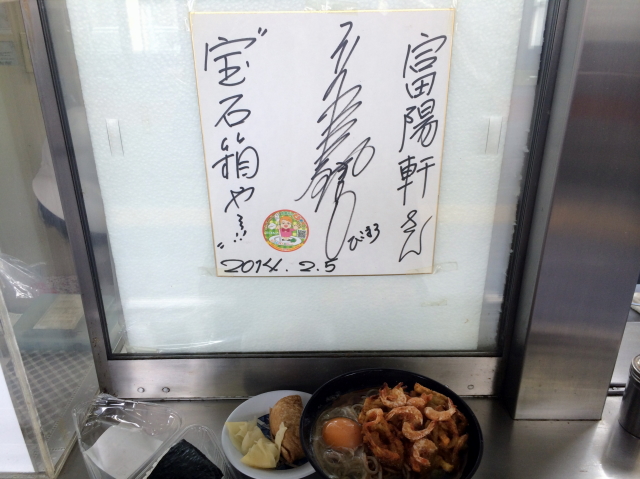 富陽軒さん
びまろ
"宝石箱や〜!!"
2014.2.5